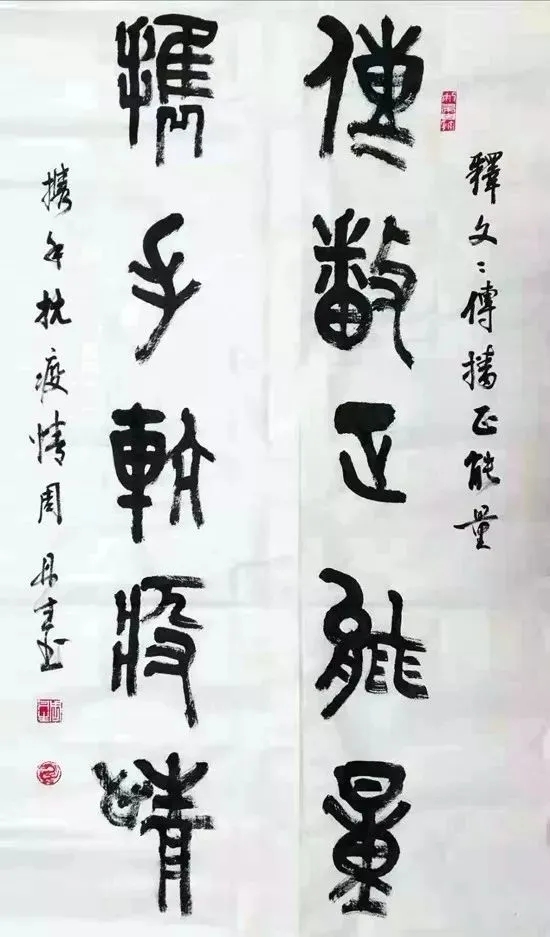 釋文：傳播正能量
傳播正能量
攜手抗疫情
携手抗疫情周丹